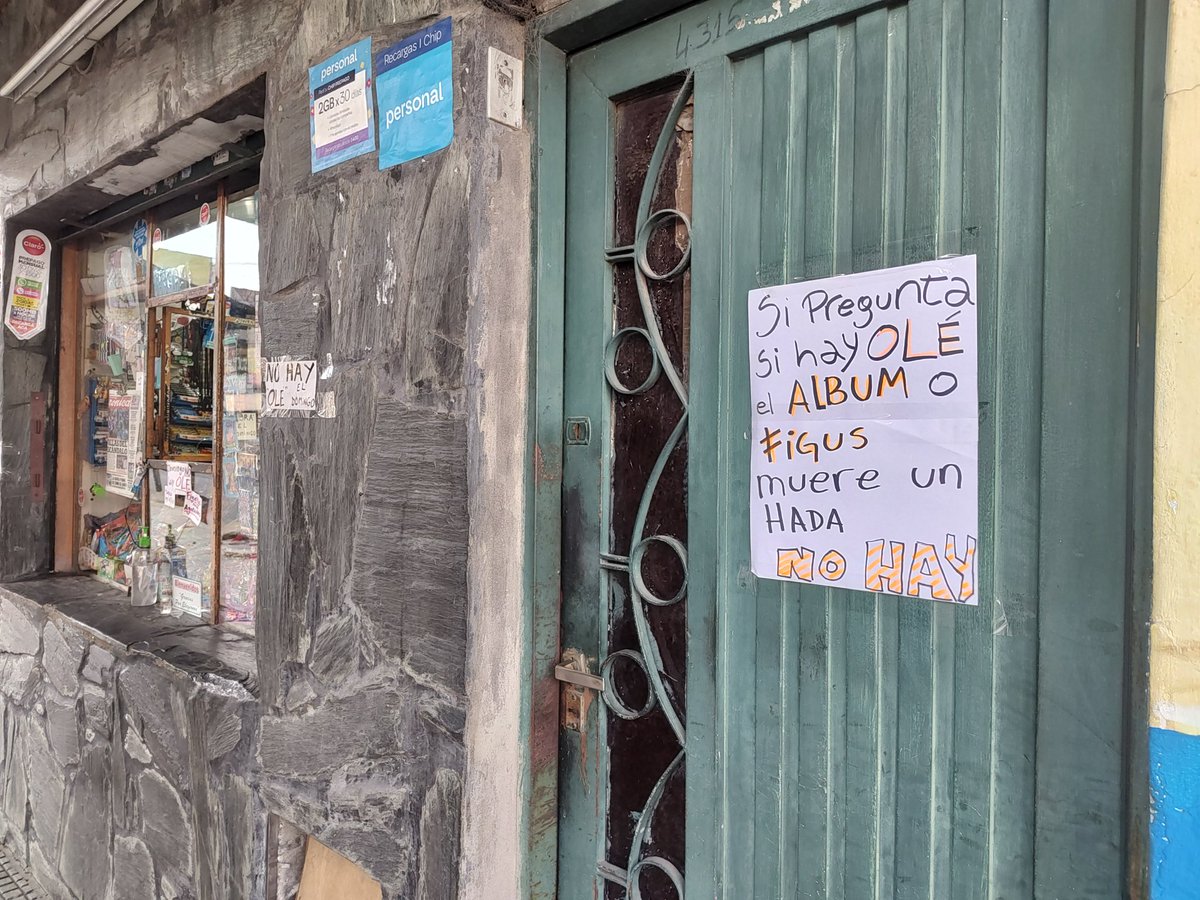 4312
personal
2GB x 30
días
Recargas | Chip
personal
Claro
PREPAGO
NO HAY
"OLE" EL
DOMINGO
OLE
Bienvenidos
Si Pregunta
si hay OLÉ
el ALBUM o
FiGUS
muere un
HADA
NO HAY